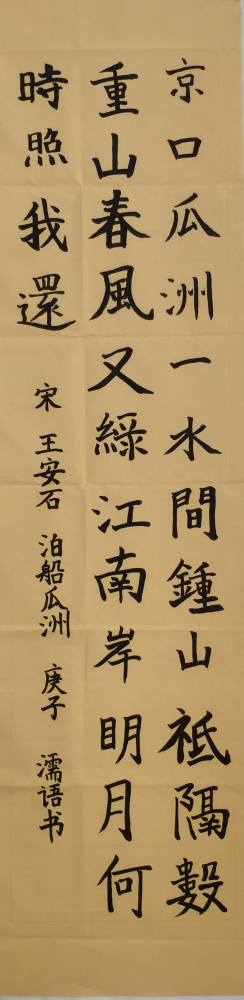 京口瓜洲一水間鍾山祗隔數
重山春風又綠江南岸明月何
時照我還
宋 王安石 泊船瓜洲 庚子 濡语书